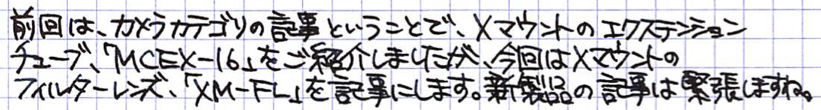 前回は、カメラカテゴリの記事ということで、Xマウントのエクステンション
チューブ、「MCEX-16」をご紹介しましたが、今回はXマウントの
フィルターレンズ、「XM-FL」を記事にします。新製品の記事は緊張しますね。